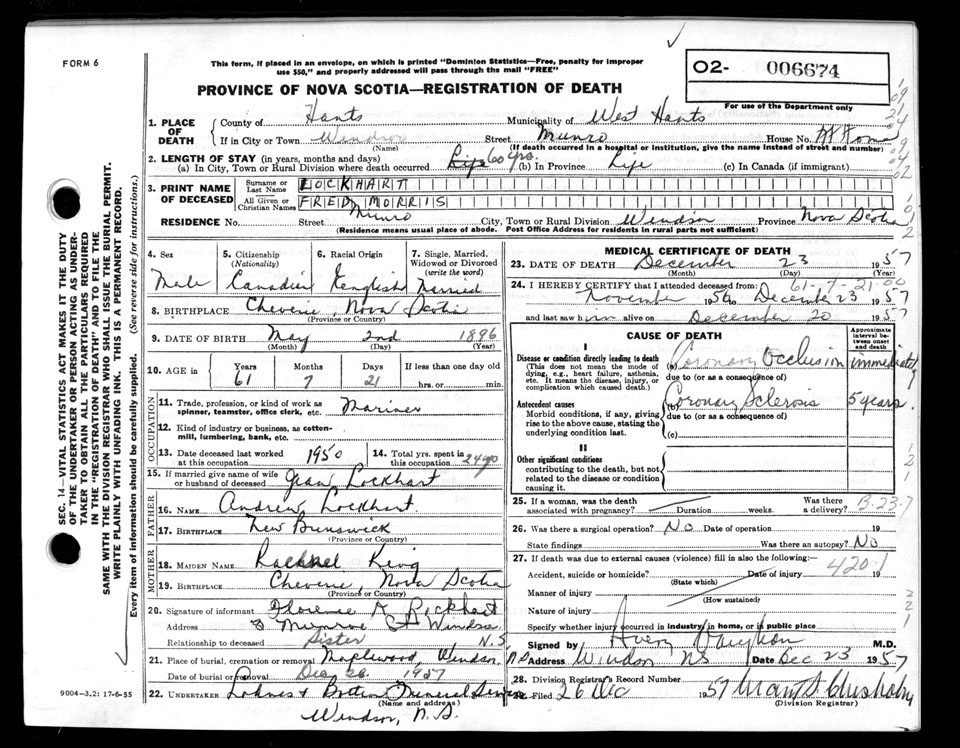 FORM 6
This form, if placed in an envelope, on which is printed "Dominion Statistics—Free, penalty for improper
use $50," and properly addressed will pass through the mail "FREE"
PROVINCE OF NOVA SCOTIA—REGISTRATION OF DEATH
O2- 006674
For use of the Department only
1. PLACE OF DEATH
County of Hants Municipality of West Hants
If in City or Town Windsor Street Munro House No. At Home
(Name) (If death occurred in a hospital or institution, give the name instead of street and number)
2. LENGTH OF STAY (in years, months and days)
(a) In City, Town or Rural Division where death occurred 60 yrs. (b) In Province Life (c) In Canada (if immigrant)
3. PRINT NAME OF DECEASED
Surname or Last Name LOCKHART
All Given or Christian Names FRED MORRIS
RESIDENCE No. Street Munro City, Town or Rural Division Windsor Province Nova Scotia
(Residence means usual place of abode. Post Office Address for residents in rural parts not sufficient)
4. Sex
Male
5. Citizenship (Nationality)
Canadian
6. Racial Origin
English
7. Single, Married, Widowed or Divorced (write the word)
Married
8. BIRTHPLACE Cheverie, Nova Scotia
(Province or Country)
9. DATE OF BIRTH May 2nd 1896
(Month) (Day) (Year)
10. AGE in Years Months Days If less than one day old
61 7 21 hrs. or min.
OCCUPATION
11. Trade, profession, or kind of work as spinner, teamster, office clerk, etc. Mariner
12. Kind of industry or business, as cotton-mill, lumbering, bank, etc.
13. Date deceased last worked at this occupation 1950
14. Total yrs. spent in this occupation 24 yo
15. If married give name of wife or husband of deceased Jean Lockhart
FATHER
16. NAME Andrew Lockhart
17. BIRTHPLACE New Brunswick
(Province or Country)
MOTHER
18. MAIDEN NAME Rachael King
19. BIRTHPLACE Cheverie, Nova Scotia
(Province or Country)
20. Signature of informant Florence A Lockhart
Address Munroe St Windsor
Relationship to deceased Sister N.S
21. Place of burial, cremation or removal Maplewood, Windsor, N.S
Date of burial or removal Dec 26 1957
22. UNDERTAKER Funeral Service
(Name and address)
Windsor, N.S.
MEDICAL CERTIFICATE OF DEATH
23. DATE OF DEATH December 23 1957
(Month) (Day) (Year)
61-7-21-00
24. I HEREBY CERTIFY that I attended deceased from:
November 1956 to December 23 1957
and last saw him alive on December 20 1957
CAUSE OF DEATH
Approximate interval between onset and death
I
Disease or condition directly leading to death (This does not mean the mode of dying, e.g., heart failure, asthenia, etc. It means the disease, injury, or complication which caused death.)
(a) Coronary Occlusion immediate
due to (or as a consequence of)
Antecedent causes
Morbid conditions, if any, giving rise to the above cause, stating the underlying condition last.
(b) Coronary Sclerosis 5 years.
due to (or as a consequence of)
(c)
II
Other significant conditions contributing to the death, but not related to the disease or condition causing it.
25. If a woman, was the death associated with pregnancy? Duration weeks. Was there a delivery? B-23-7
26. Was there a surgical operation? No Date of operation 19
State findings Was there an autopsy? No
27. If death was due to external causes (violence) fill in also the following:— 420.1
Accident, suicide or homicide? Date of injury 19
(State which)
Manner of injury
(How sustained)
Nature of injury
Specify whether injury occurred in industry, in home, or in public place
Signed by Avery Vaughan M.D.
Address Windsor NS Date Dec 23 1957
28. Division Registrar's Record Number
Filed 26 Dec 1957
(Division Registrar)
SEC. 14—VITAL STATISTICS ACT MAKES IT THE DUTY
OF THE UNDERTAKER OR PERSON ACTING AS UNDER-
TAKER TO OBTAIN ALL THE PARTICULARS REQUIRED
IN THE "REGISTRATION OF DEATH" AND TO FILE THE
SAME WITH THE DIVISION REGISTRAR WHO SHALL ISSUE THE BURIAL PERMIT.
WRITE PLAINLY WITH UNFADING INK. THIS IS A PERMANENT RECORD.
Every item of information should be carefully supplied. (See reverse side for instructions.)
9004—3.2: 17-6-55